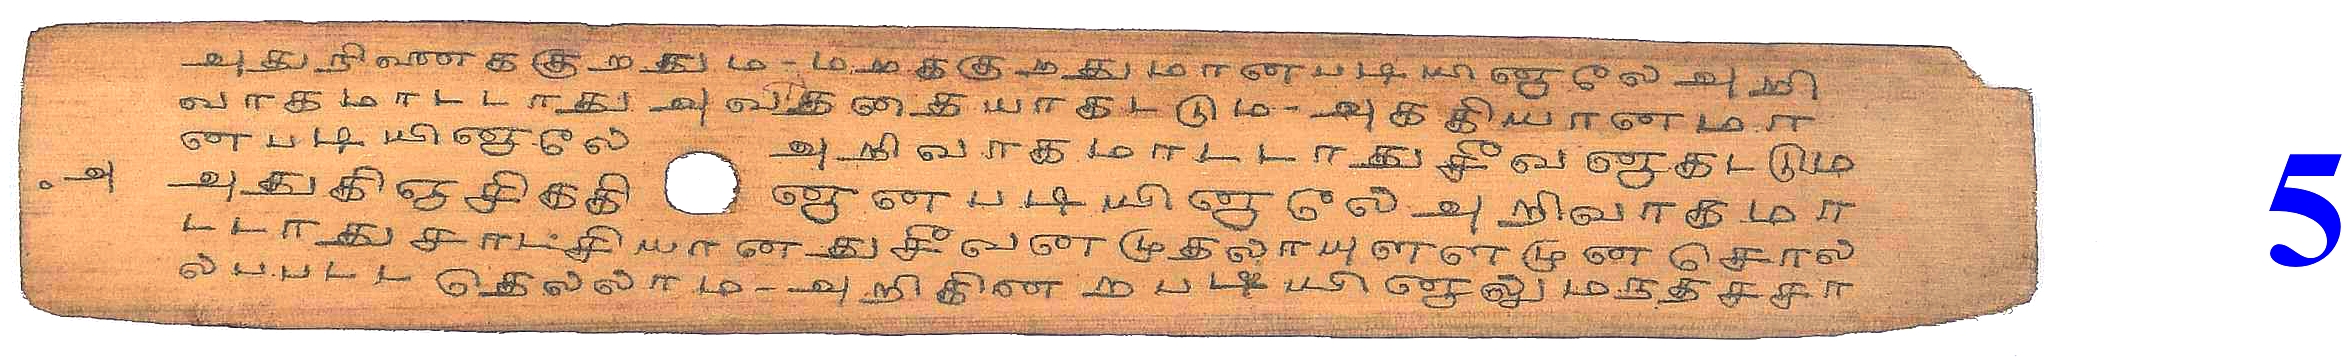 அதுநிணைககுறதும-மறககுறதுமானபடியினாலே அறி
வாகமாடடாது அவததைதயாகடடும-அகதியானமா
னபடியினாலே அறிவாகமாடடாது சீவனாகடடும
அ அதுகிஞசிககினானபடியினாலே அறிவாகமா
டடாது சாட்சியானது சீவனமுதலாயுளளமுன சொல
லபபடடதெலலாம-அறிகினறபடியினாலுமநதசசா
5